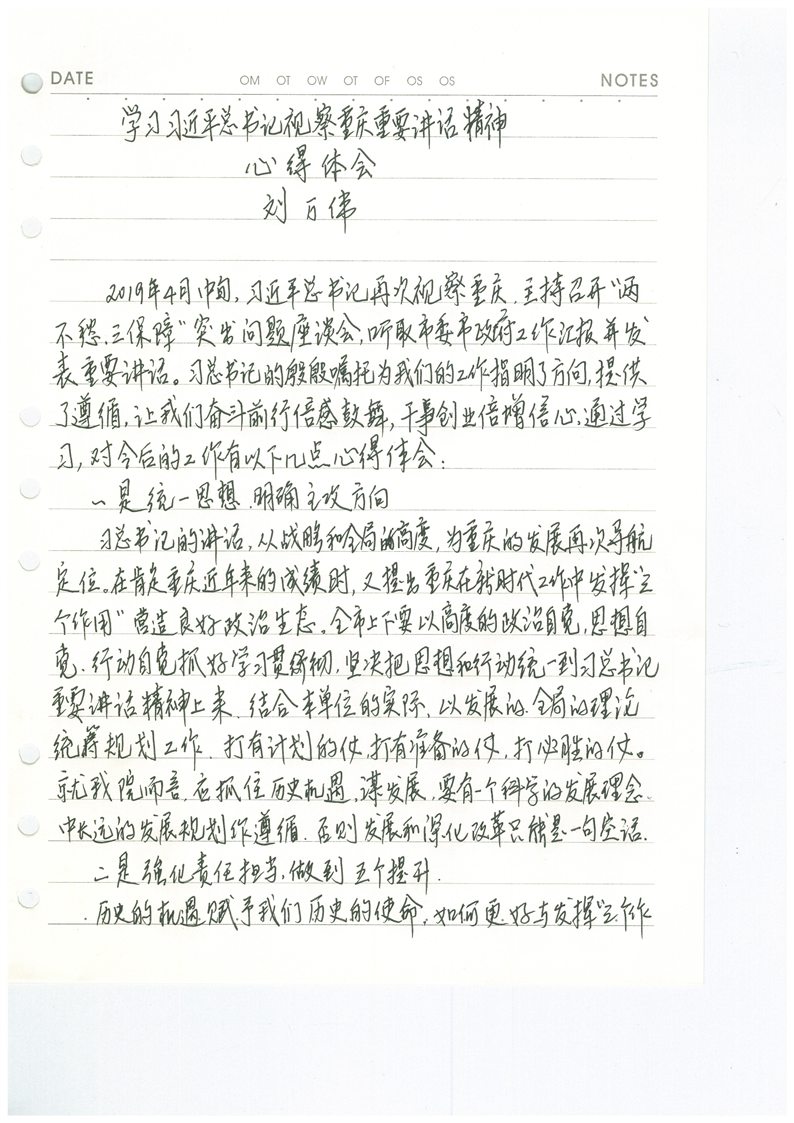 DATE
OM OT OW OT OF OS OS
NOTES
学习习近平总书记视察重庆重要讲话精神
心得体会
刘万伟
2019年4月中旬,习近平总书记再次视察重庆,主持召开“两
不愁、三保障”突出问题座谈会,听取市委市政府工作汇报并发
表重要讲话。习总书记的殷殷嘱托为我们的工作指明了方向,提供
了遵循,让我们奋斗前行倍感鼓舞,干事创业倍增信心,通过学
习,对今后的工作有以下几点心得体会:
一是统一思想、明确主攻方向
习总书记的讲话,从战略和全局的高度,为重庆的发展再次导航
定位。在肯定重庆近年来的成绩时,又提出重庆在新时代工作中发挥“三
个作用”营造良好政治生态。全市上下要以高度的政治自觉,思想自
觉、行动自觉抓好学习贯彻,坚决把思想和行动统一到习总书记
重要讲话精神上来、结合本单位的实际、以发展的、全局的理论
统筹规划工作、打有计划的仗,打有准备的仗,打必胜的仗。
就我院而言,应抓住历史机遇,谋发展,要有一个科学的发展理念、
中长远的发展规划作遵循.否则发展和深化改革只能是一句空话.
二是强化责任担当,做到五个提升.
历史的机遇赋予我们历史的使命,如何更好与发挥“三个作